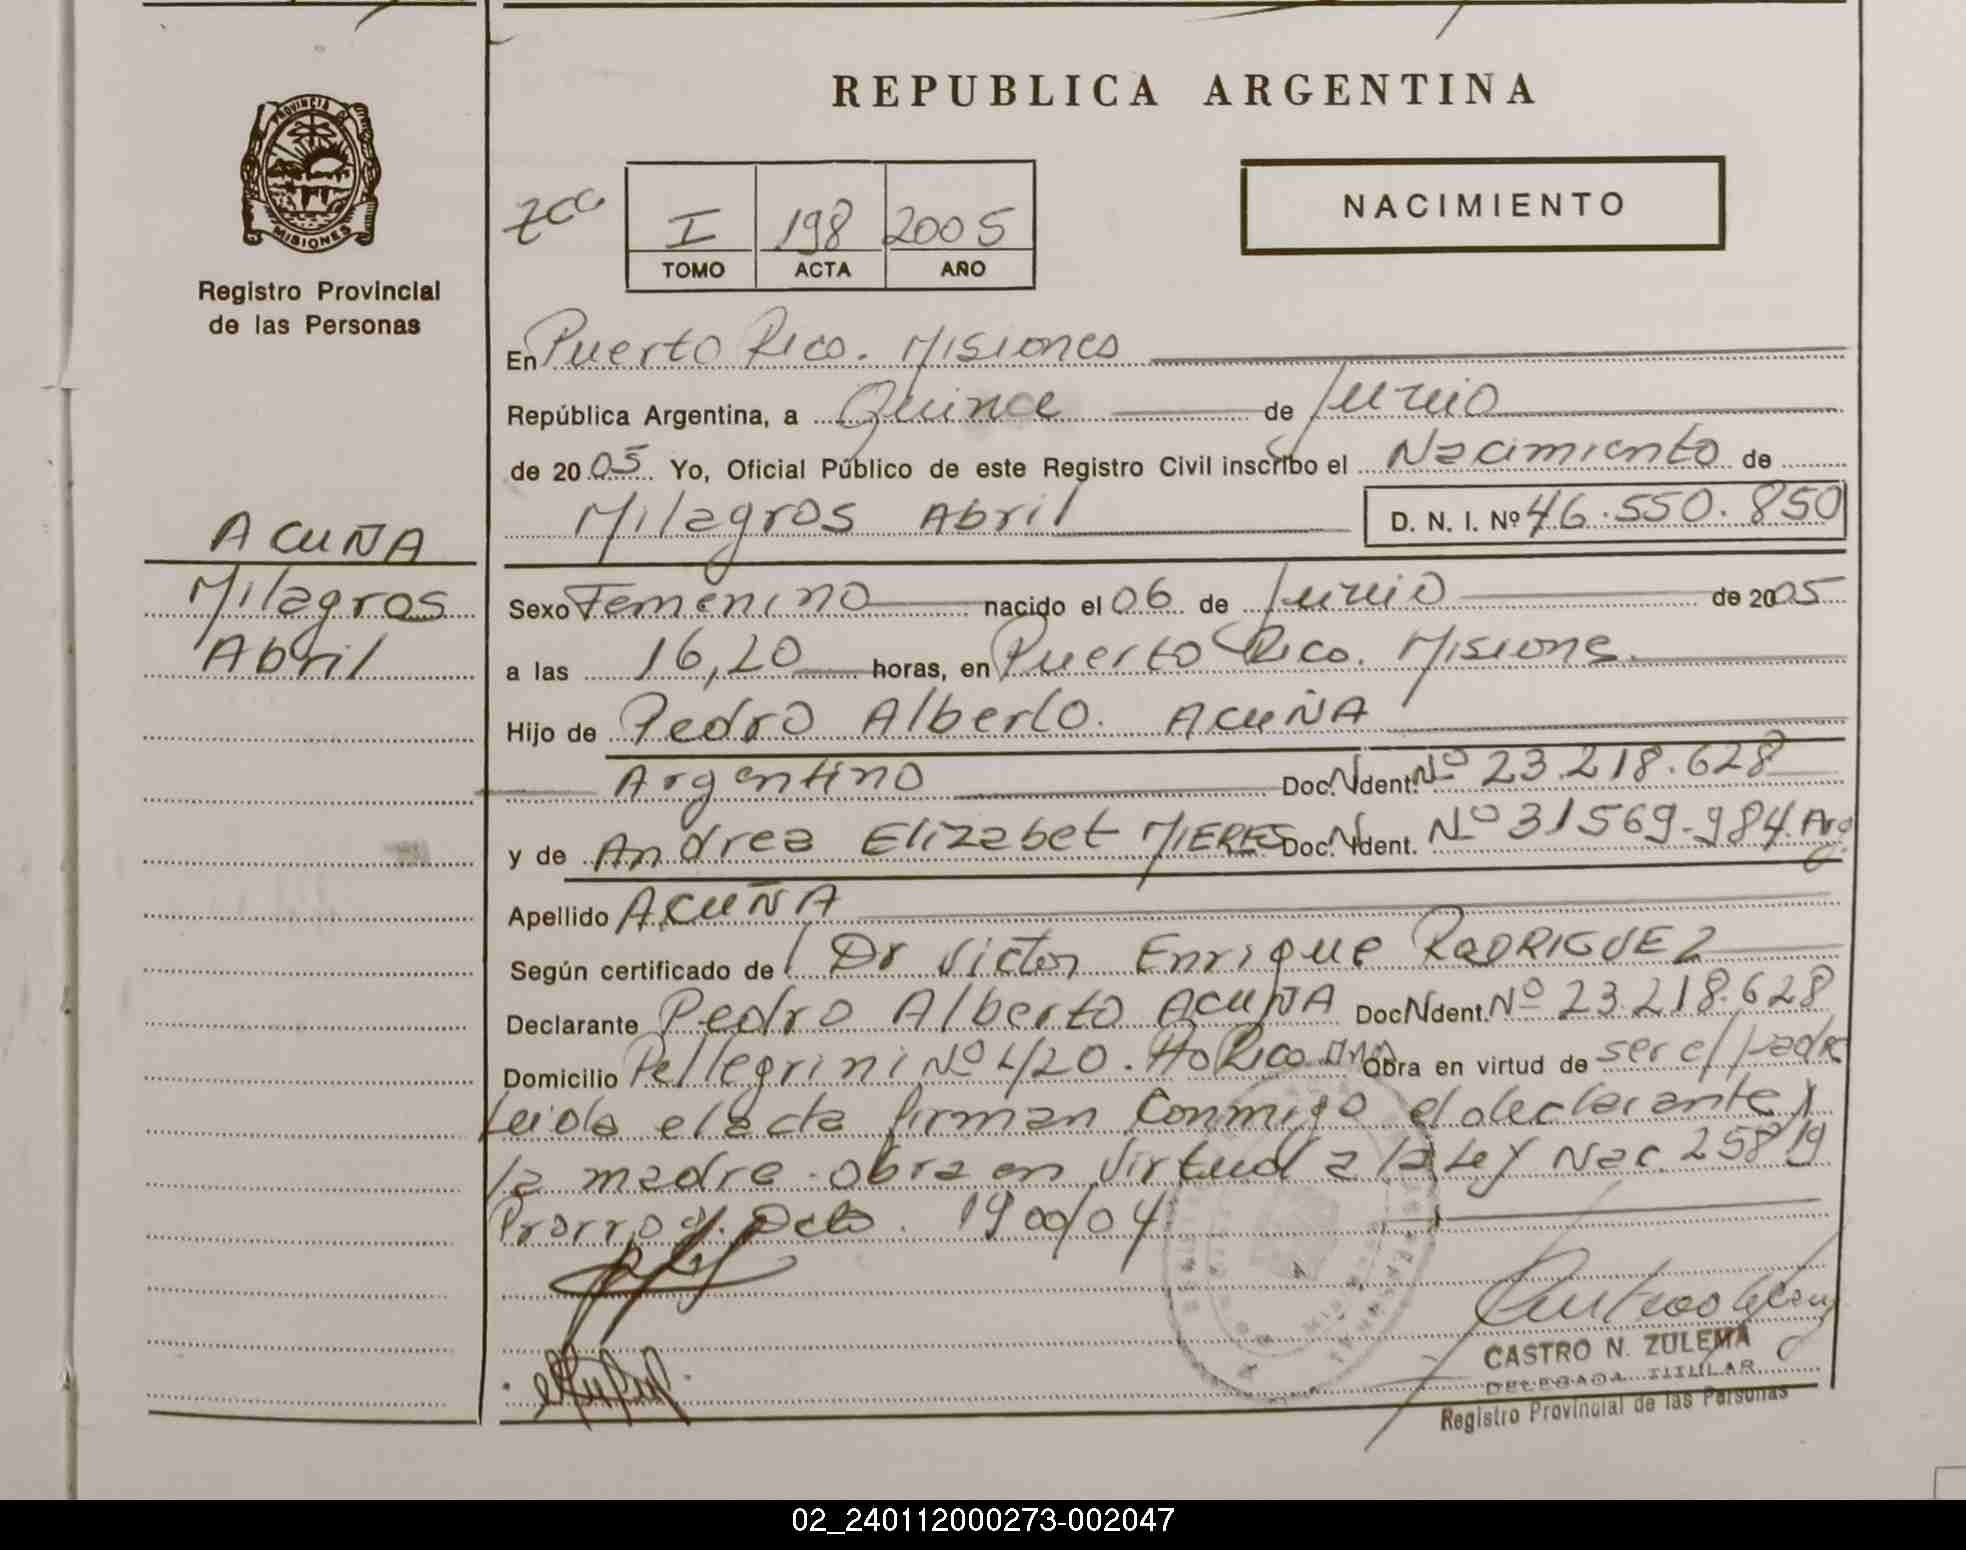 REPUBLICA ARGENTINA
PROVINCIA DE
MISIONES
Registro Provincial
de las Personas
I 198 2005
TOMO ACTA AÑO
NACIMIENTO
En Puerto Rico. Misiones
República Argentina, a Quince de Junio
de 2005 Yo, Oficial Público de este Registro Civil inscribo el Nacimiento de
Milagros Abril D. N. I. Nº 46.550.850
ACUÑA
Milagros
Abril
Sexo Femenino nacido el 06 de Junio de 2005
a las 16,20 horas, en Puerto Rico. Misiones.
Hijo de Pedro Alberto. ACUÑA
Argentino Doc. Ident. Nº 23.218.628
y de Andrea Elizabet MIERES Doc. Ident. Nº 31569.984. Arg.
Apellido ACUÑA
Según certificado de Dr Victor Enrique RODRIGUEZ
Declarante Pedro Alberto ACUÑA Doc Ident. Nº 23.218.628
Domicilio Pellegrini Nº 420. Pto Rico Mnes Obra en virtud de ser el padre
Leida el acta firman conmigo el declarante y
la madre. obra en virtud a la Ley Nac. 25819
Prorrog. Dcto. 1900/04
CASTRO N. ZULEMA
DELEGADA TITULAR
Registro Provincial de las Personas
02_240112000273-002047